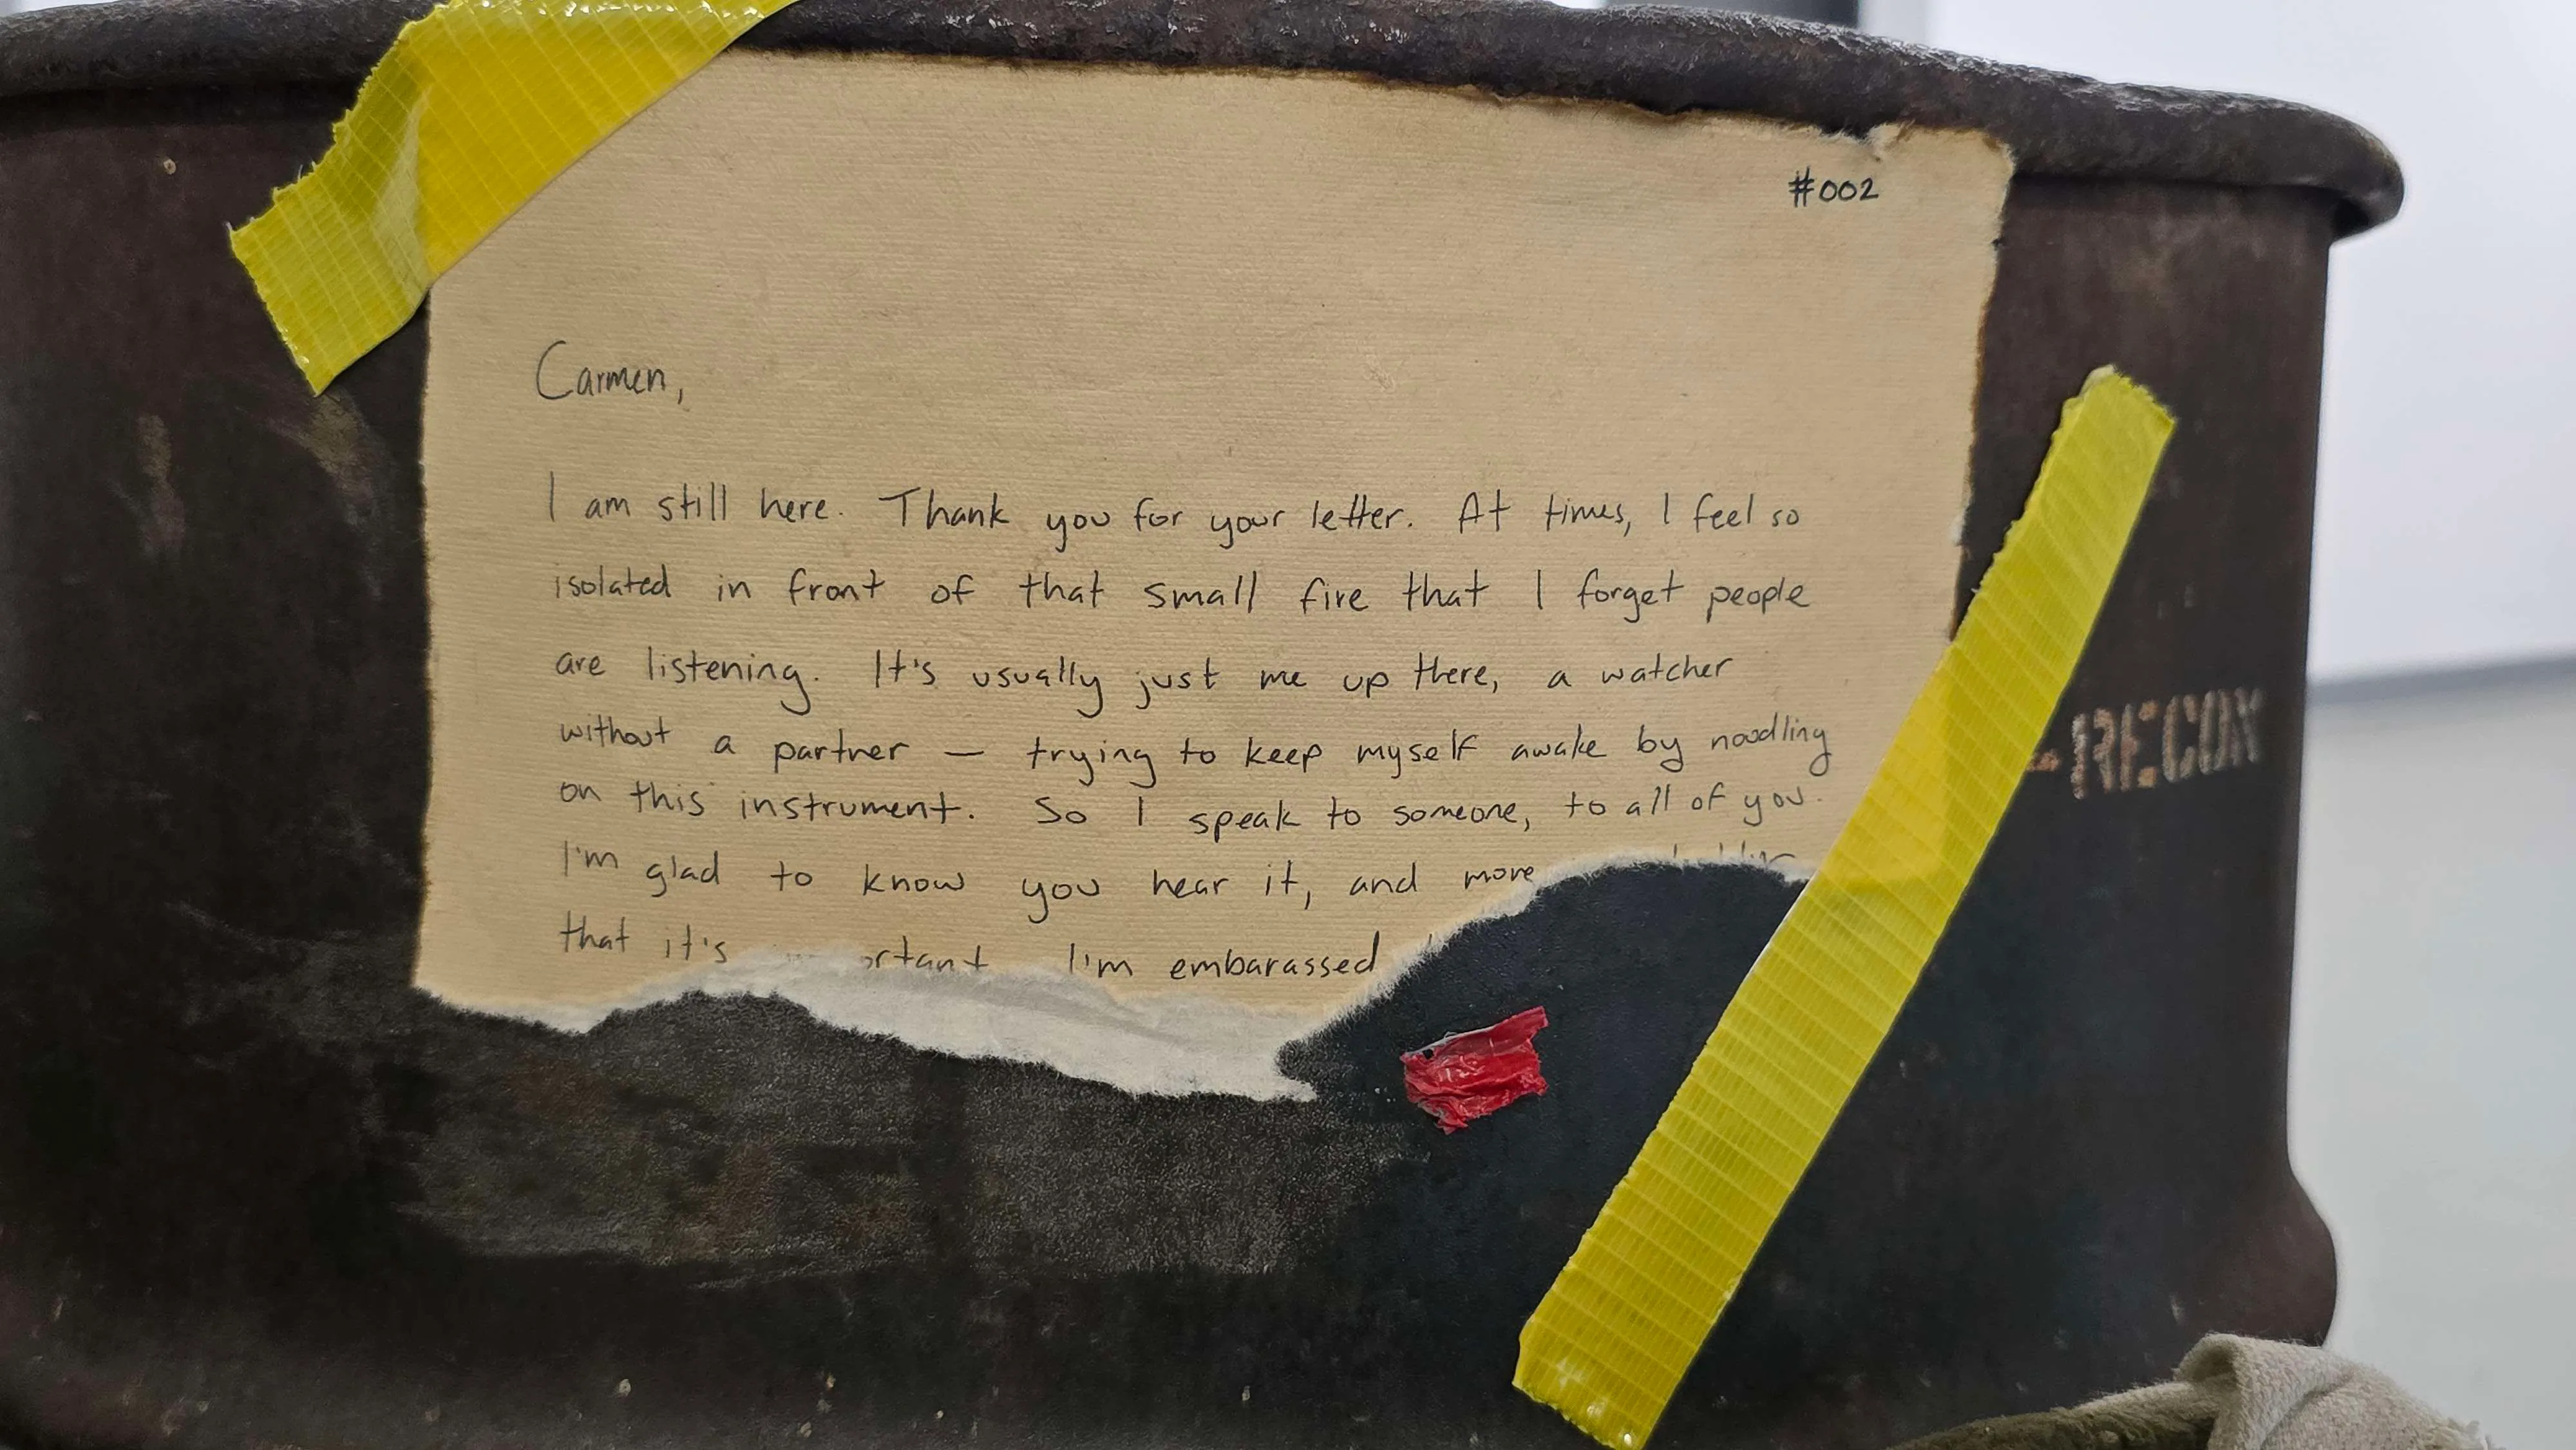 #002
Carmen,
I am still here. Thank you for your letter. At times, I feel so
isolated in front of that small fire that I forget people
are listening. It's usually just me up there, a watcher
without a partner — trying to keep myself awake by noodling
on this instrument. So I speak to someone, to all of you.
I'm glad to know you hear it, and more
that it's I'm embarassed
RECON